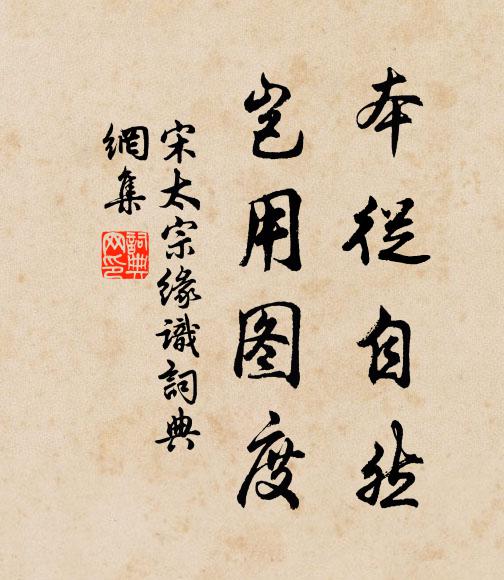 本從自然
岂用图度
宋太宗緣識詞典
網集
詞典
网印